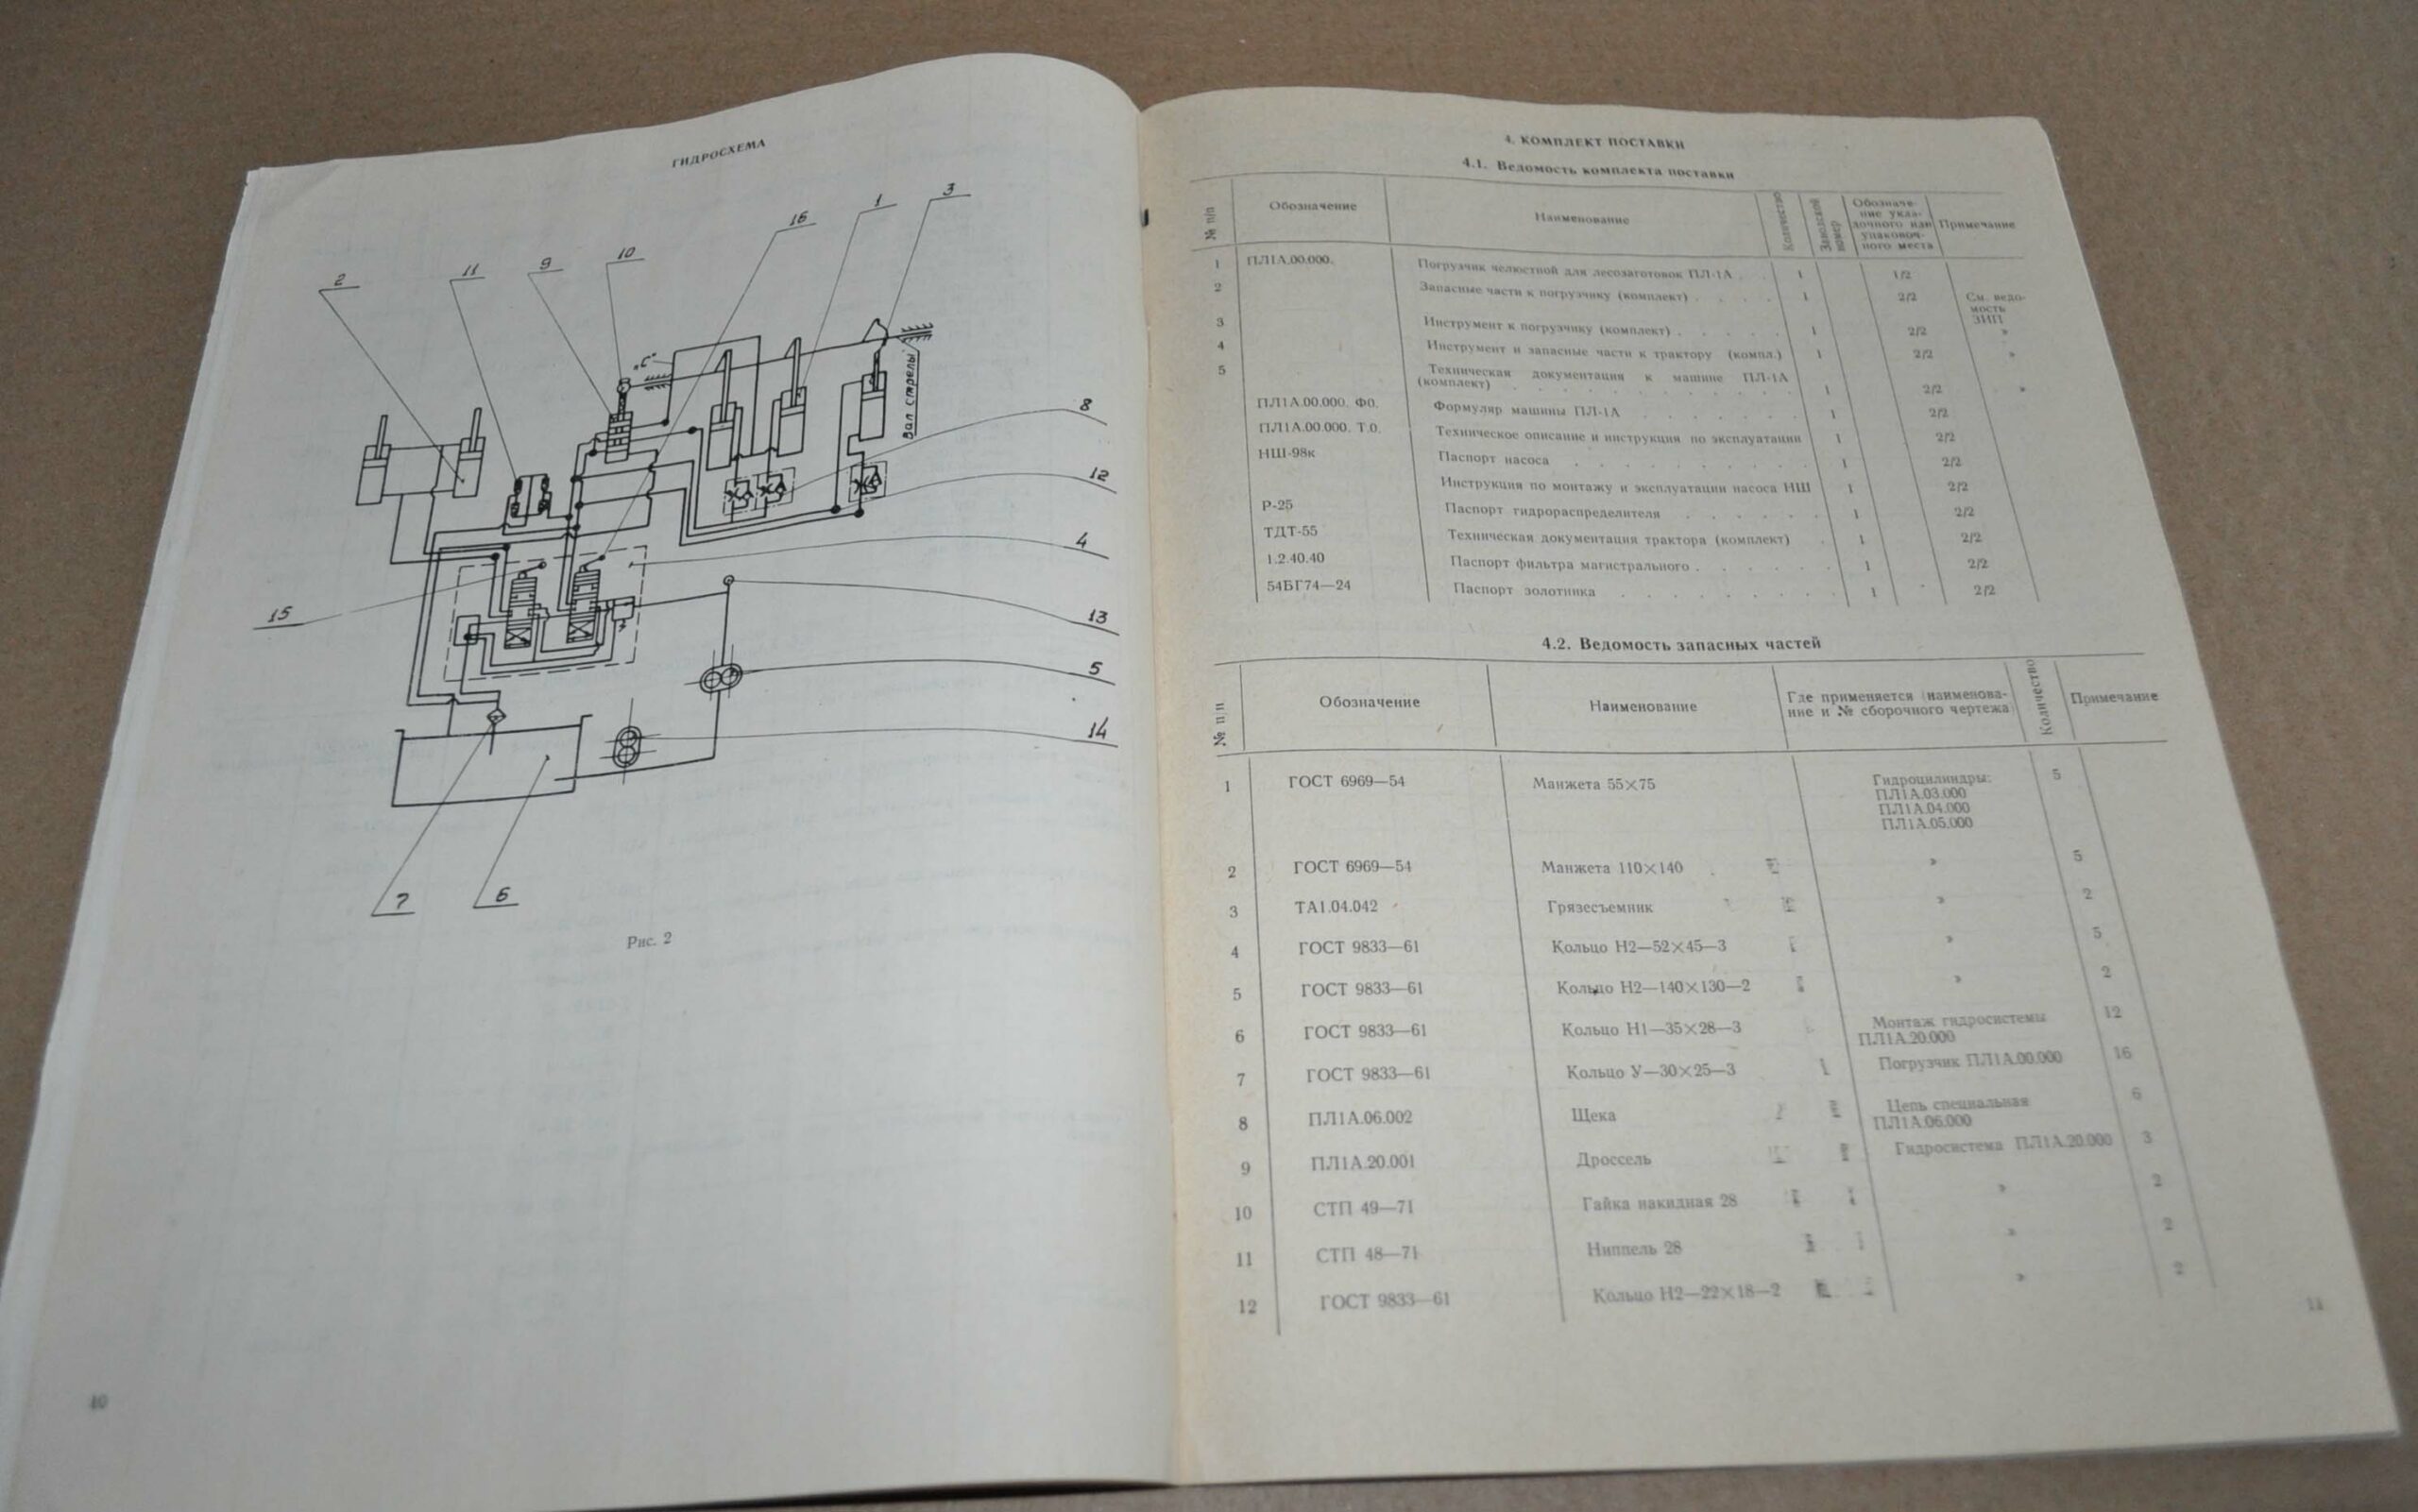 ГИДРОСХЕМА
2
11
9
10
16
1
3
"С"
Вал стрелы
8
12
4
15
13
5
14
7
6
Рис. 2
10
4. КОМПЛЕКТ ПОСТАВКИ
4.1. Ведомость комплекта поставки
№ п/п Обозначение Наименование Количество Заводской номер Обозначе-ние укла-дочного или упаковоч-ного места Примечание
1 ПЛ1А.00.000. Погрузчик челюстной для лесозаготовок ПЛ-1А . . 1 1/2
2 Запасные части к погрузчику (комплект) . . . . 1 2/2 См. ведо-мость ЗИП
3 Инструмент к погрузчику (комплект) . . . . . 1 2/2 »
4 Инструмент и запасные части к трактору (компл.) 1 2/2 »
5 Техническая документация к машине ПЛ-1А
(комплект) . . . . . . . . . . 1 2/2 »
ПЛ1А.00.000. Ф0. Формуляр машины ПЛ-1А . . . . . . 1 2/2
ПЛ1А.00.000. Т.0. Техническое описание и инструкция по эксплуатации 1 2/2
НШ-98к Паспорт насоса . . . . . . . . 1 2/2
Инструкция по монтажу и эксплуатации насоса НШ 1 2/2
Р-25 Паспорт гидрораспределителя . . . . . . 1 2/2
ТДТ-55 Техническая документация трактора (комплект) . 1 2/2
1.2.40.40 Паспорт фильтра магистрального . . . . . 1 2/2
54БГ74—24 Паспорт золотника . . . . . . . . 1 2/2
4.2. Ведомость запасных частей
№ п/п Обозначение Наименование Где применяется (наименова-ние и № сборочного чертежа Количество Примечание
1 ГОСТ 6969—54 Манжета 55×75 Гидроцилиндры: 5
ПЛ1А.03.000
ПЛ1А.04.000
ПЛ1А.05.000
2 ГОСТ 6969—54 Манжета 110×140 » 5
3 ТА1.04.042 Грязесъемник » 2
4 ГОСТ 9833—61 Кольцо Н2—52×45—3 » 5
5 ГОСТ 9833—61 Кольцо Н2—140×130—2 » 2
6 ГОСТ 9833—61 Кольцо Н1—35×28—3 Монтаж гидросистемы 12
ПЛ1А.20.000
7 ГОСТ 9833—61 Кольцо У—30×25—3 Погрузчик ПЛ1А.00.000 16
8 ПЛ1А.06.002 Щека Цепь специальная 6
ПЛ1А.06.000
9 ПЛ1А.20.001 Дроссель Гидросистема ПЛ1А.20.000 3
10 СТП 49—71 Гайка накидная 28 » 2
11 СТП 48—71 Ниппель 28 » 2
12 ГОСТ 9833—61 Кольцо Н2—22×18—2 » 2
11